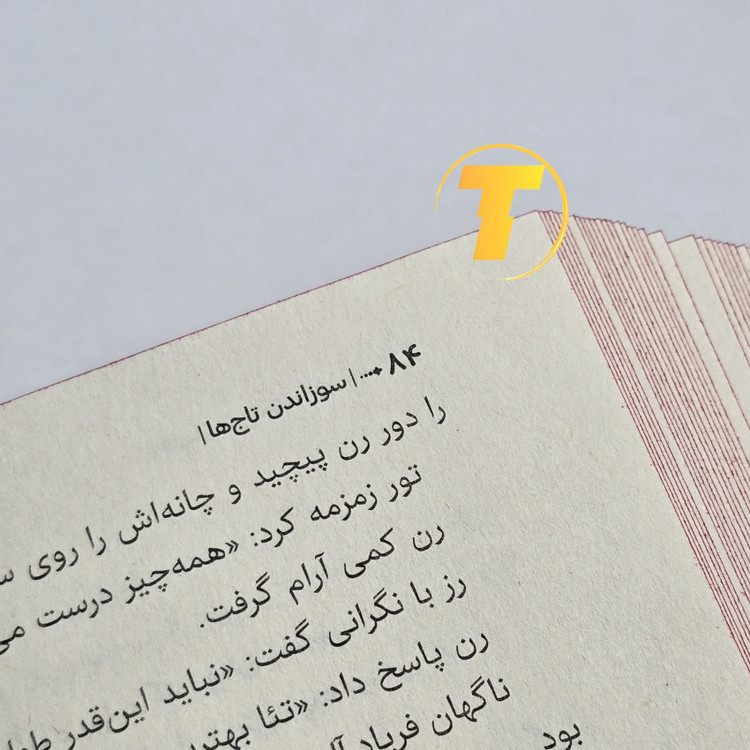 T
۸۴ | سوزاندن تاج‌ها |
را دور رن پیچید و چانه‌اش را روی
تور زمزمه کرد: «همه‌چیز درست
رن کمی آرام گرفت.
رز با نگرانی گفت: «نباید این‌قدر
رن پاسخ داد: «تئا
ناگهان فریاد
بود